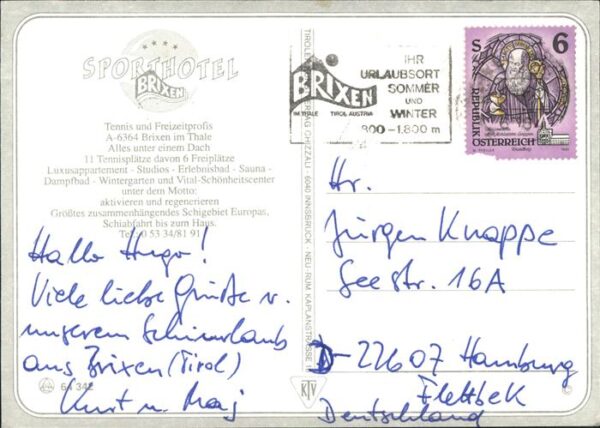 SPORTHOTEL
BRIXEN
Tennis und Freizeitprofis
A-6364 Brixen im Thale
Alles unter einem Dach
11 Tennisplätze davon 6 Freiplätze
Luxusappartement - Studios - Erlebnisbad - Sauna -
Dampfbad - Wintergarten und Vital-Schönheitscenter
unter dem Motto:
aktivieren und regenerieren
Größtes zusammenhängendes Schigebiet Europas,
Schiabfahrt bis zum Haus.
Tel. 0 53 34/81 91
Hallo Hugo!
Viele liebe Grüße v.
unserem Schiurlaub
aus Brixen (Tirol)
Kurt u.
64 342
6040 INNSBRUCK NEU RUM, KAPLANSTRASSE
KTV
BRIXEN
IM THALE TIROL AUSTRIA
IHR
URLAUBSORT
SOMMER
UND
WINTER
800 - 1.800 m
S 6
REPUBLIK
ÖSTERREICH
Hr.
Jürgen Knappe
Seestr. 16A
D-22607 Hamburg
Flottbek
Deutschland